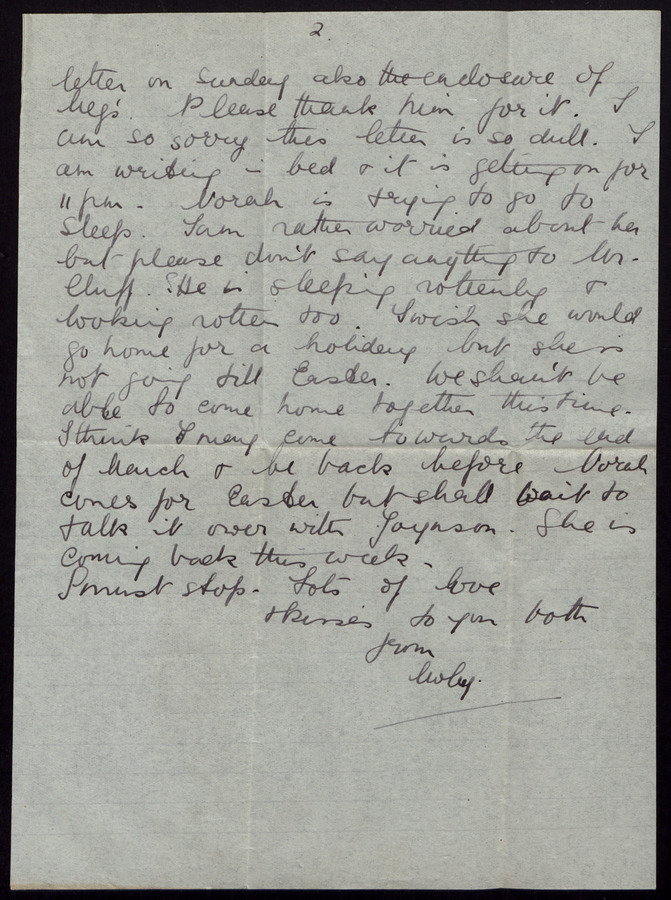 2.
letter on Sunday also the enclosure of
Meg's. Please thank him for it. I
am so sorry this letter is so dull. I
am writing in bed & it is getting on for
11 pm. Norah is trying to go to
sleep. I am rather worried about her
but please don't say anything to Mr.
Cluff. She is sleeping rottenly &
looking rotten too. I wish she would
go home for a holiday but she is
not going till Easter. We shan't be
able to come home together this time.
I think I may come towards the end
of March & be back before Norah
comes for Easter but shall wait to
talk it over with Joynson. She is
coming back this week.
I must stop. Lots of love
& kisses to you both
from